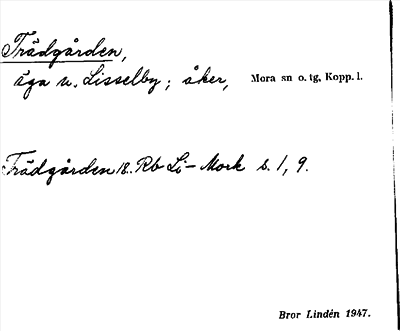 Trädgården,
äga u. Lisselby; åker, Mora sn o. tg, Kopp. l.
Trädgården 18. Rb Li–Mork s. 1, 9.
Bror Lindén 1947.